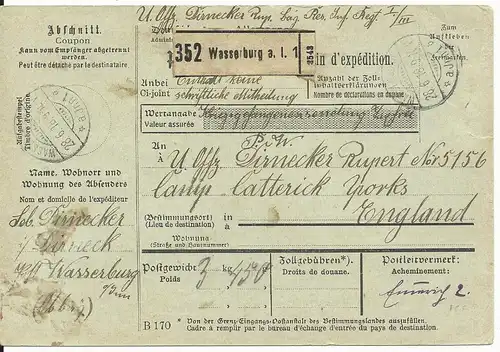 U. Offz. Dirnecker Rup.
Abschnitt.
Coupon
Kann vom Empfänger abgetrennt
werden.
Peut être détaché par le destinataire
352 Wasserburg a. I. 1
3543
n d'expédition.
Zum
Aufkleben
Anbei
Ci-joint
Enthält keine
schriftliche Mitteilung
Anzahl der Zoll-
inhaltserklärungen
Nombre de déclarations en douane
Wertangabe
Valeur assurée
Kriegsgefangenensendung
Aufgabestempel
Timbre d'origine.
P. o. W.
An
A
U. Offz. Dirnecker Rupert Nr 5156
Camp Catterick Yorks
England
(Bestimmungsort)
(Lieu de destination)
in
à
Wohnung
(Straße und Hausnummer)
Name, Wohnort und
Wohnung des Absenders
Nom et domicile de l'expéditeur
Dirnecker
Dirneck
Wasserburg
Postgewicht
Poids
3 kg 450 g
Zollgebühren*).
Droits de douane.
Postleitvermerk:
Acheminement:
Emmerich 2.
B 170
*) Von der Grenz-Eingangs-Postanstalt des Bestimmungslandes auszufüllen.
Cadre à remplir par le bureau d'échange d'entrée du pays de destination.